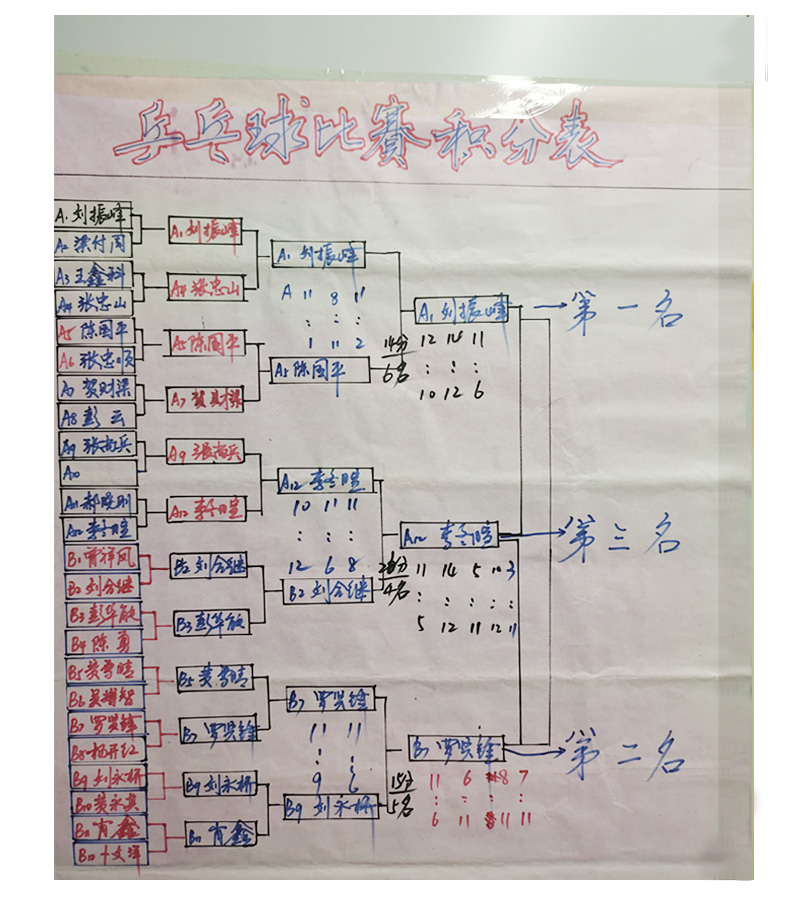 乒乓球比赛积分表
A1 刘振峰
A2 梁付周
A3 王鑫科
A4 张忠山
A5 陈国平
A6 张忠顺
A7 贺财梁
A8 彭云
A9 张尚兵
A10
A11 郝晓刚
A12 李冬暄
B1 曾祥凤
B2 刘合继
B3 彭华敏
B4 陈勇
B5 黄雪晴
B6
B7 罗贤锋
B8 杨开红
B9 刘永桥
B10 黄永其
B11 肖鑫
B12
A1 刘振峰
A4 张忠山
A5 陈国平
A7 贺财梁
A9 张尚兵
A12 李冬暄
B2 刘合继
B3 彭华敏
B5 黄雪晴
B7 罗贤锋
B9 刘永桥
B11 肖鑫
A1 刘振峰
A 11 8 11
: : :
1 11 2
A5 陈国平
14分
6名
A12 李冬暄
10 11 11
: : :
12 6 8
B2 刘合继
4名
B7 罗贤锋
11 11
: :
9 6
B9 刘永桥
15分
5名
A1 刘振峰
12 14 11
: : :
10 12 6
A12 李冬暄
11 14 5 10 3
: : : : :
5 12 11 12 11
B7 罗贤锋
11 6 8 7
: : : :
6 11 11 11
第一名
第三名
第二名